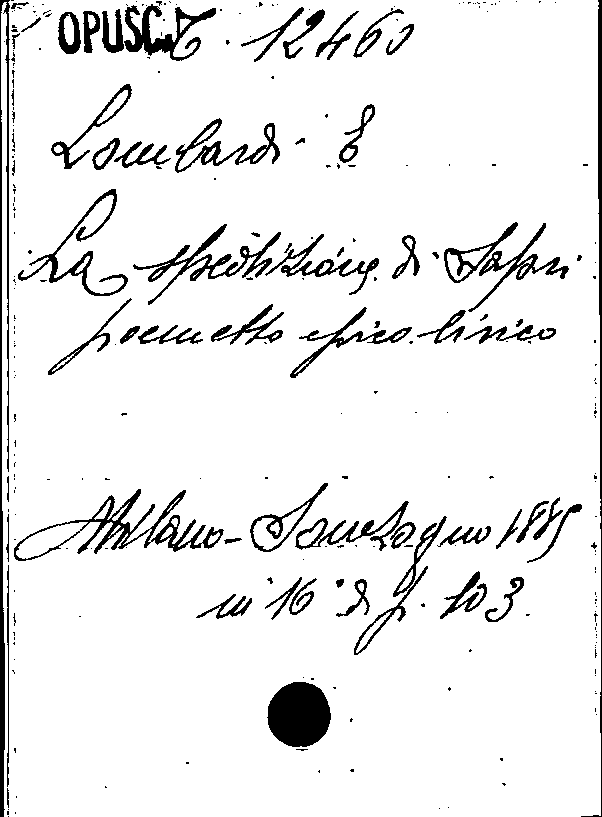 OPUSC. C. 12460
Lombardi E
La spedizione di Sapri
poemetto epico lirico
Milano - Sonzogno 1885
in 16° di p. 103